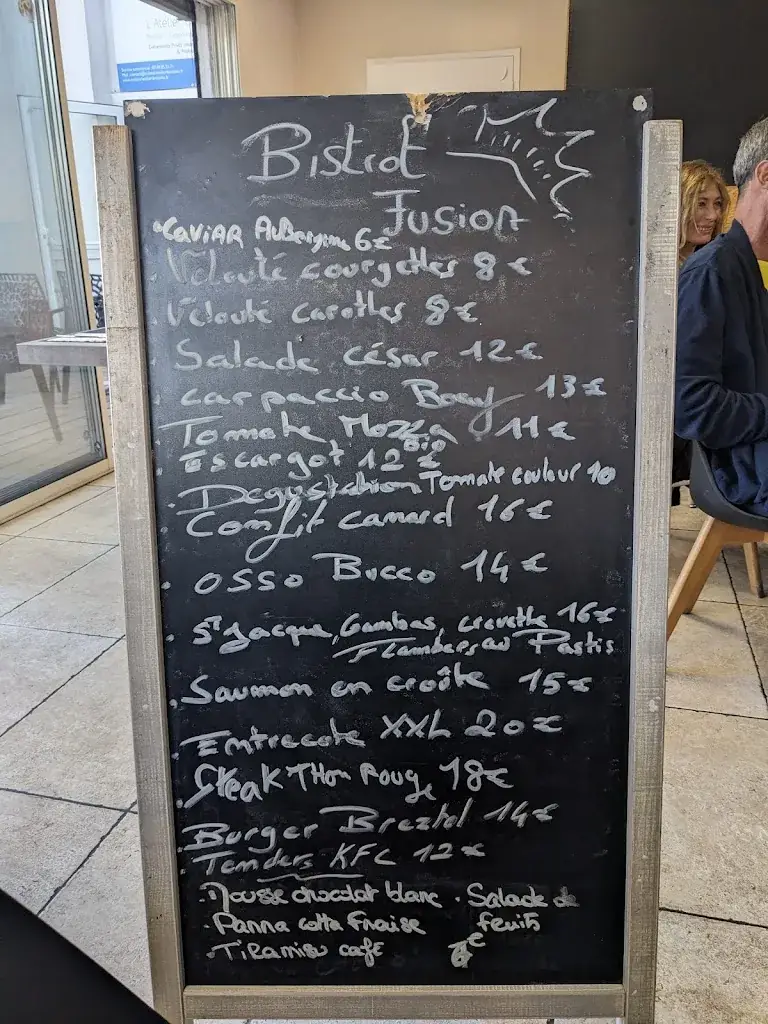 L'Atelier
Bistrot
Fusion
Caviar Aubergine 6€
Velouté courgettes 8€
Velouté carottes 8€
Salade césar 12€
Carpaccio Boeuf 13€
Tomate Mozza 11€
Bio
Escargot 12€
Degustation Tomate couleur 10
Confit canard 16€
Osso Bucco 14€
St Jacque, Gambas, crevette 16€
Flambers au Pastis
Saumon en croûte 15€
Entrecote XXL 20€
Steak Thon Rouge 18€
Burger Breztel 14€
Tenders KFC 12€
Mousse chocolat blanc · Salade de
fruits
Panna cotta Fraise
Tiramisu café